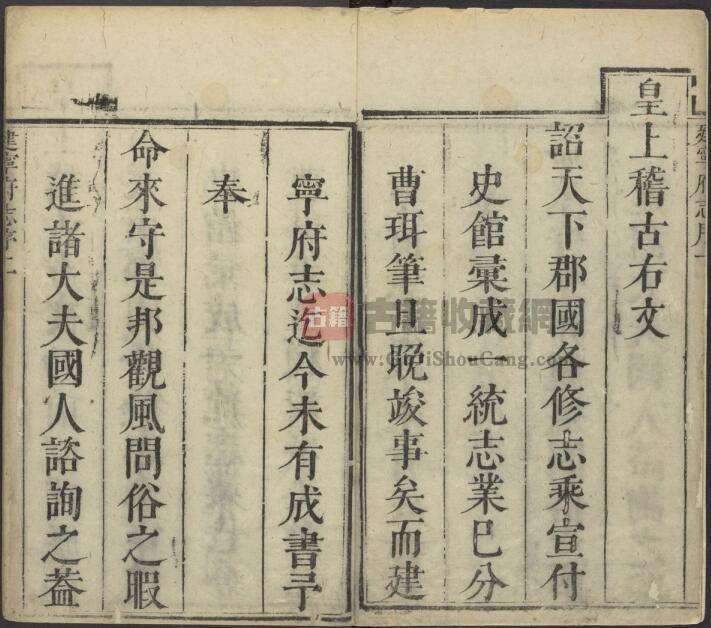 皇上稽古右文
詔天下郡國各修志乘宣付
史館彙成一統志業已分
曹珥筆旦晚竣事矣而建
寧府志迄今未有成書予
奉
命來守是邦觀風問俗之暇
進諸大夫國人諮詢之蓋
建寧府志序二
古籍
古籍收藏網
www.GuJiShouCang.com